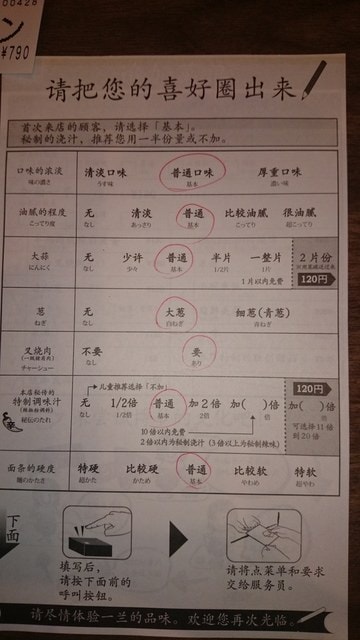 00428
ン
¥790
请把您的喜好圈出来
首次来店的顾客,请选择「基本」。
秘制的浇汁,推荐您用一半份量或不加。
口味的浓淡 清淡口味 普通口味 厚重口味
味の濃さ うす味 基本 濃い味
油腻的程度 无 清淡 普通 比较油腻 很油腻
こってり度 なし あっさり 基本 こってり 超こってり
大蒜 无 少许 普通 半片 一整片 2片份
にんにく なし 少々 基本 1/2片 1片
1片以内免费 120円
葱 无 大葱 细葱(青葱)
ねぎ なし 白ねぎ 青ねぎ
叉烧肉 不要 要
チャーシュー なし あり
儿童推荐选择「不加」 120円
本店秘传的
特制调味汁 无 1/2倍 普通 加2倍 加( )倍 加( )倍
秘伝のたれ なし 1/2倍 基本 2倍 倍 倍
10倍以内免费
2倍以内为秘制浇汁(3倍以上为秘制辣味)
可选择11倍
到20倍
面条的硬度 特硬 比较硬 普通 比较软 特软
麺のかたさ 超かた かため 基本 やわめ 超やわ
下面
填写后,
请按下面前的
呼叫按钮。
请将点菜单和要求
交给服务员。
请尽情体验一兰的品味。欢迎您再次光临。